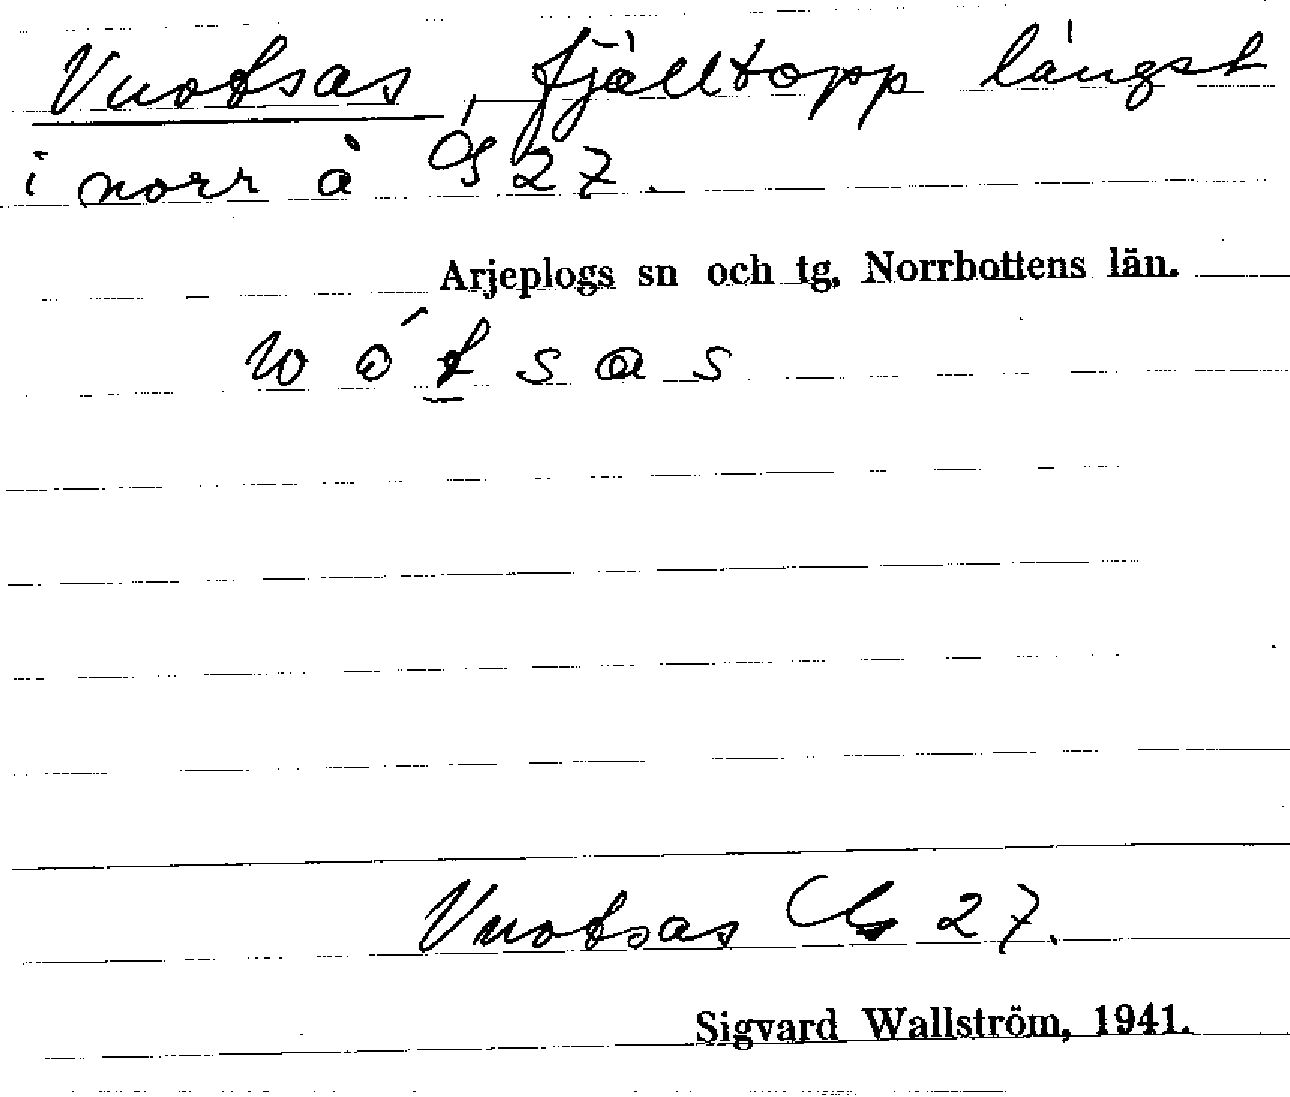 Vuotsas, fjälltopp längst
i norr å Gs 27.
Arjeplogs sn och tg. Norrbottens län.
w ó t s a s
Vuotsas Gs 27.
Sigvard Wallström, 1941.